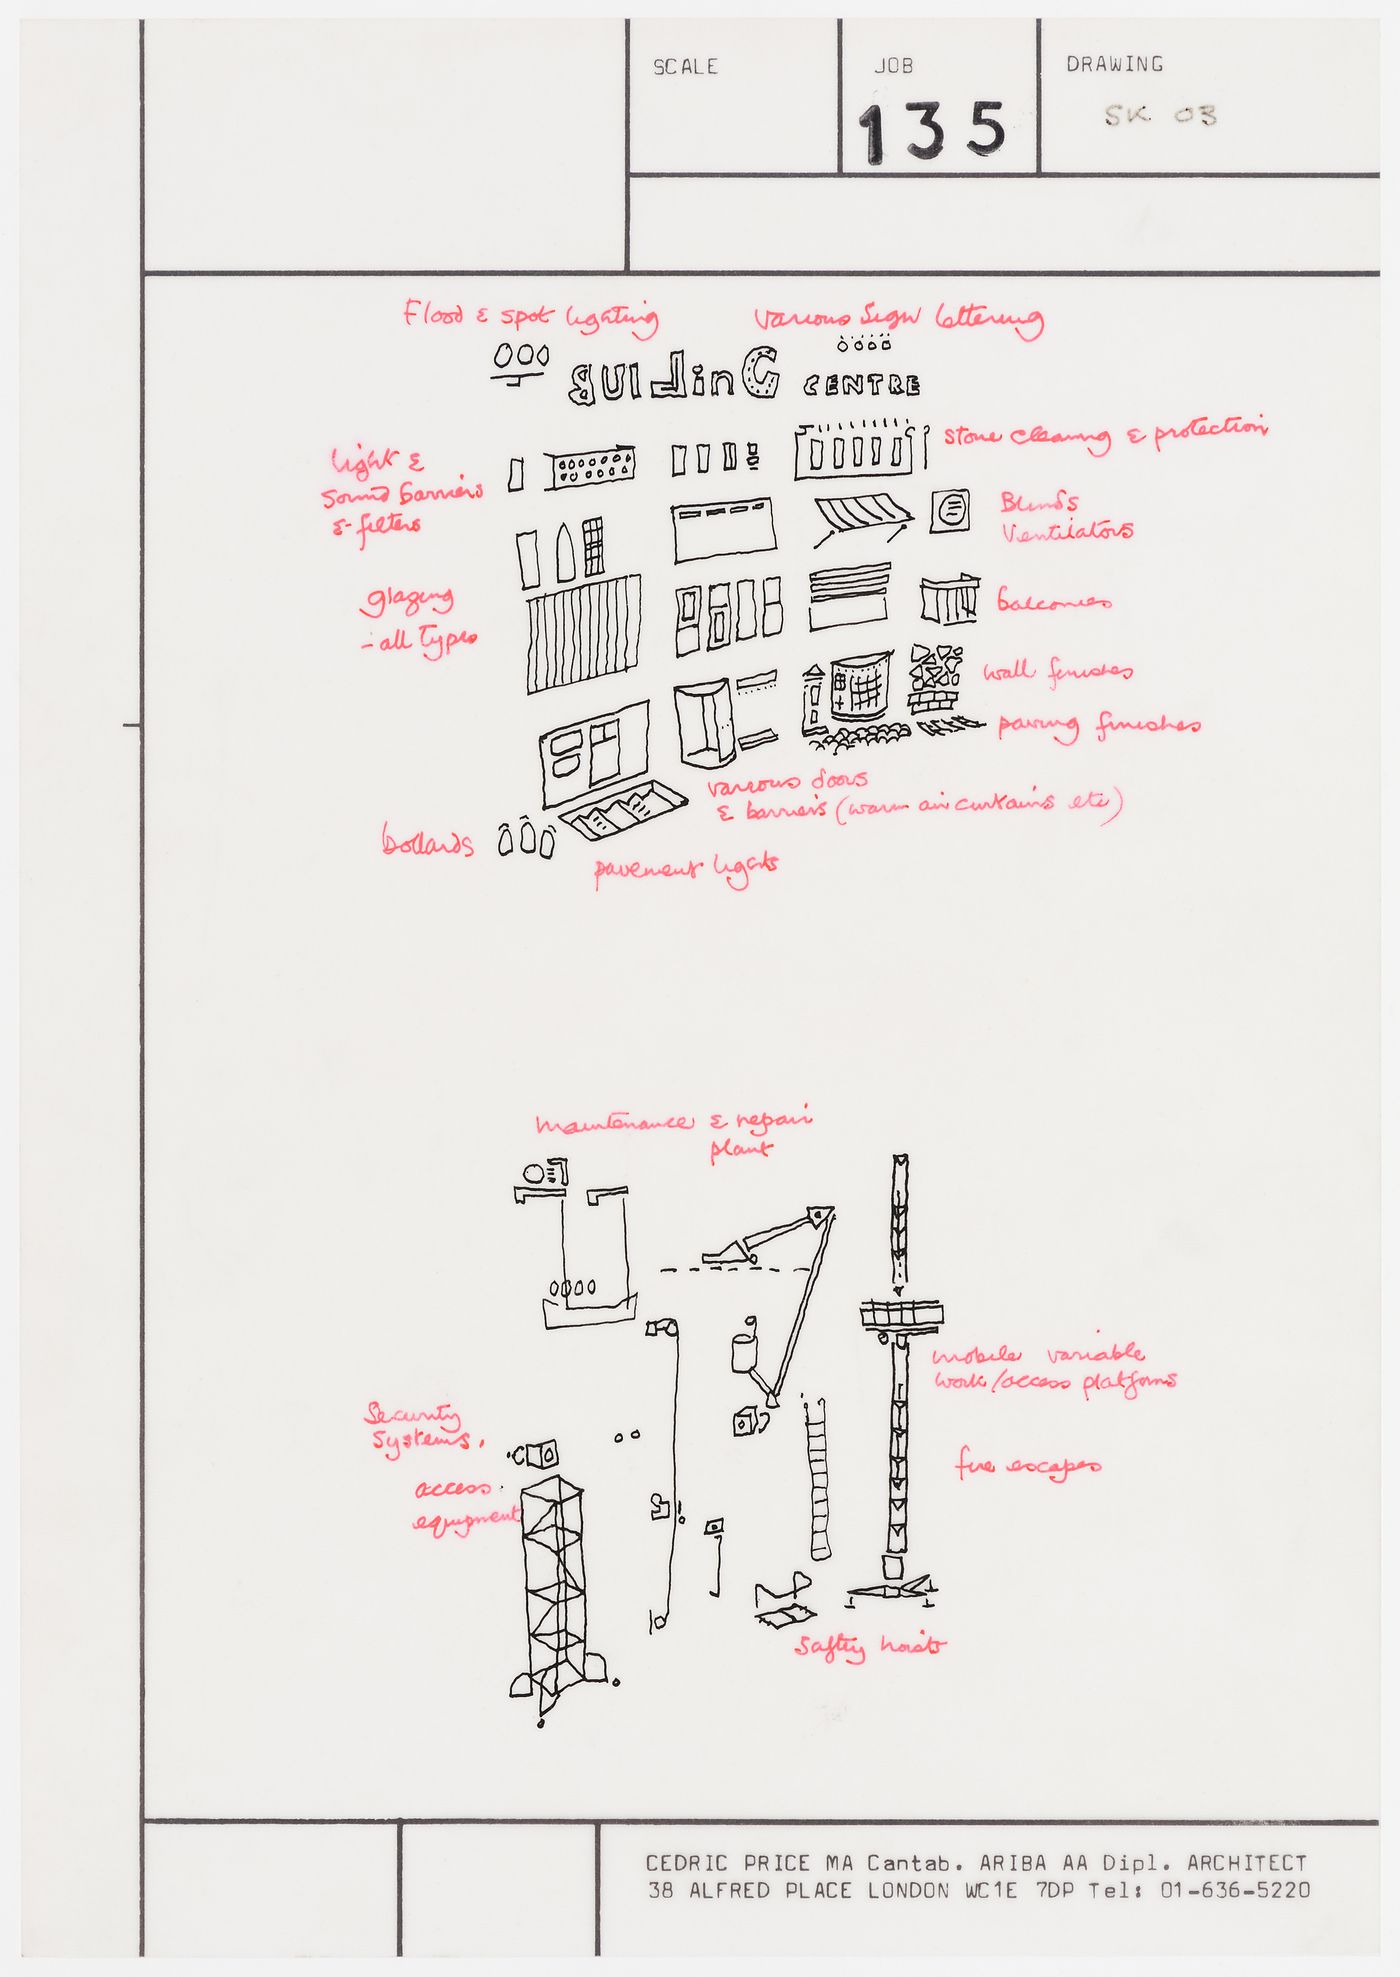 SCALE
JOB
DRAWING
135
SK 03
Flood & spot lighting
various Sign lettering
BUILdinG CENTRE
stone cleaning & protection
light &
sound barriers
& filters
Blinds
Ventilators
glazing
- all types
balconies
wall finishes
paving finishes
various doors
& barriers (warm air curtains etc)
bollards
pavement lights
maintenance & repair
plant
mobile variable
work/access platforms
Security
systems.
fire escapes
access
equipment
Safty hoists
CEDRIC PRICE MA Cantab. ARIBA AA Dipl. ARCHITECT
38 ALFRED PLACE LONDON WC1E 7DP Tel: 01-636-5220